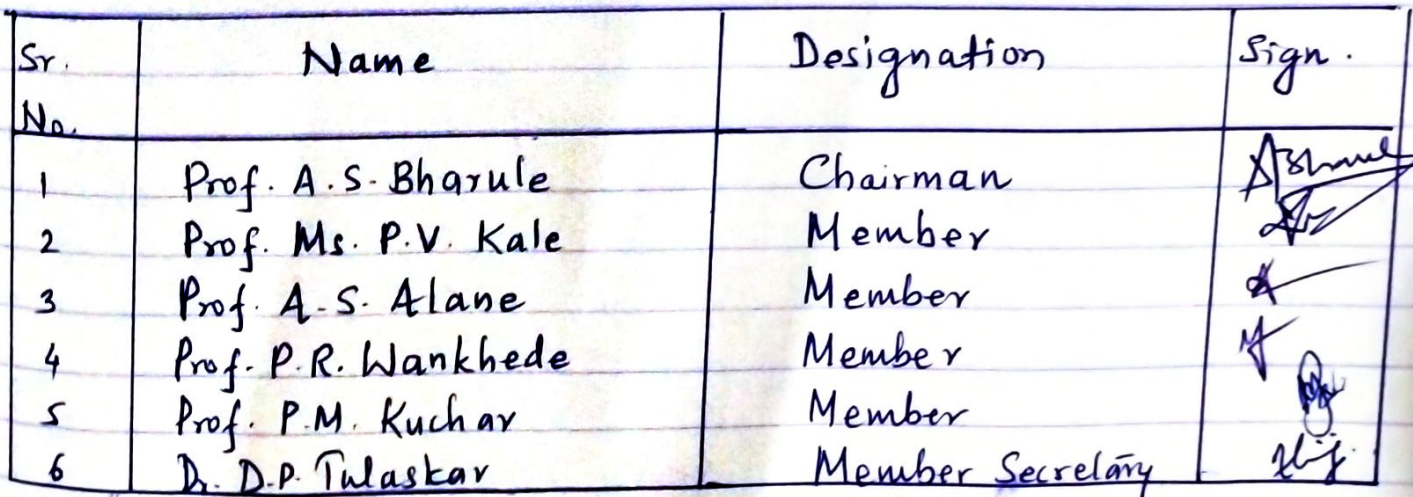 Sr. No. Name Designation Sign.
1 Prof. A.S. Bharule Chairman
2 Prof. Ms. P.V. Kale Member
3 Prof. A.S. Alane Member
4 Prof. P.R. Wankhede Member
5 Prof. P.M. Kuchar Member
6 Dr. D.P. Tulaskar Member Secretary